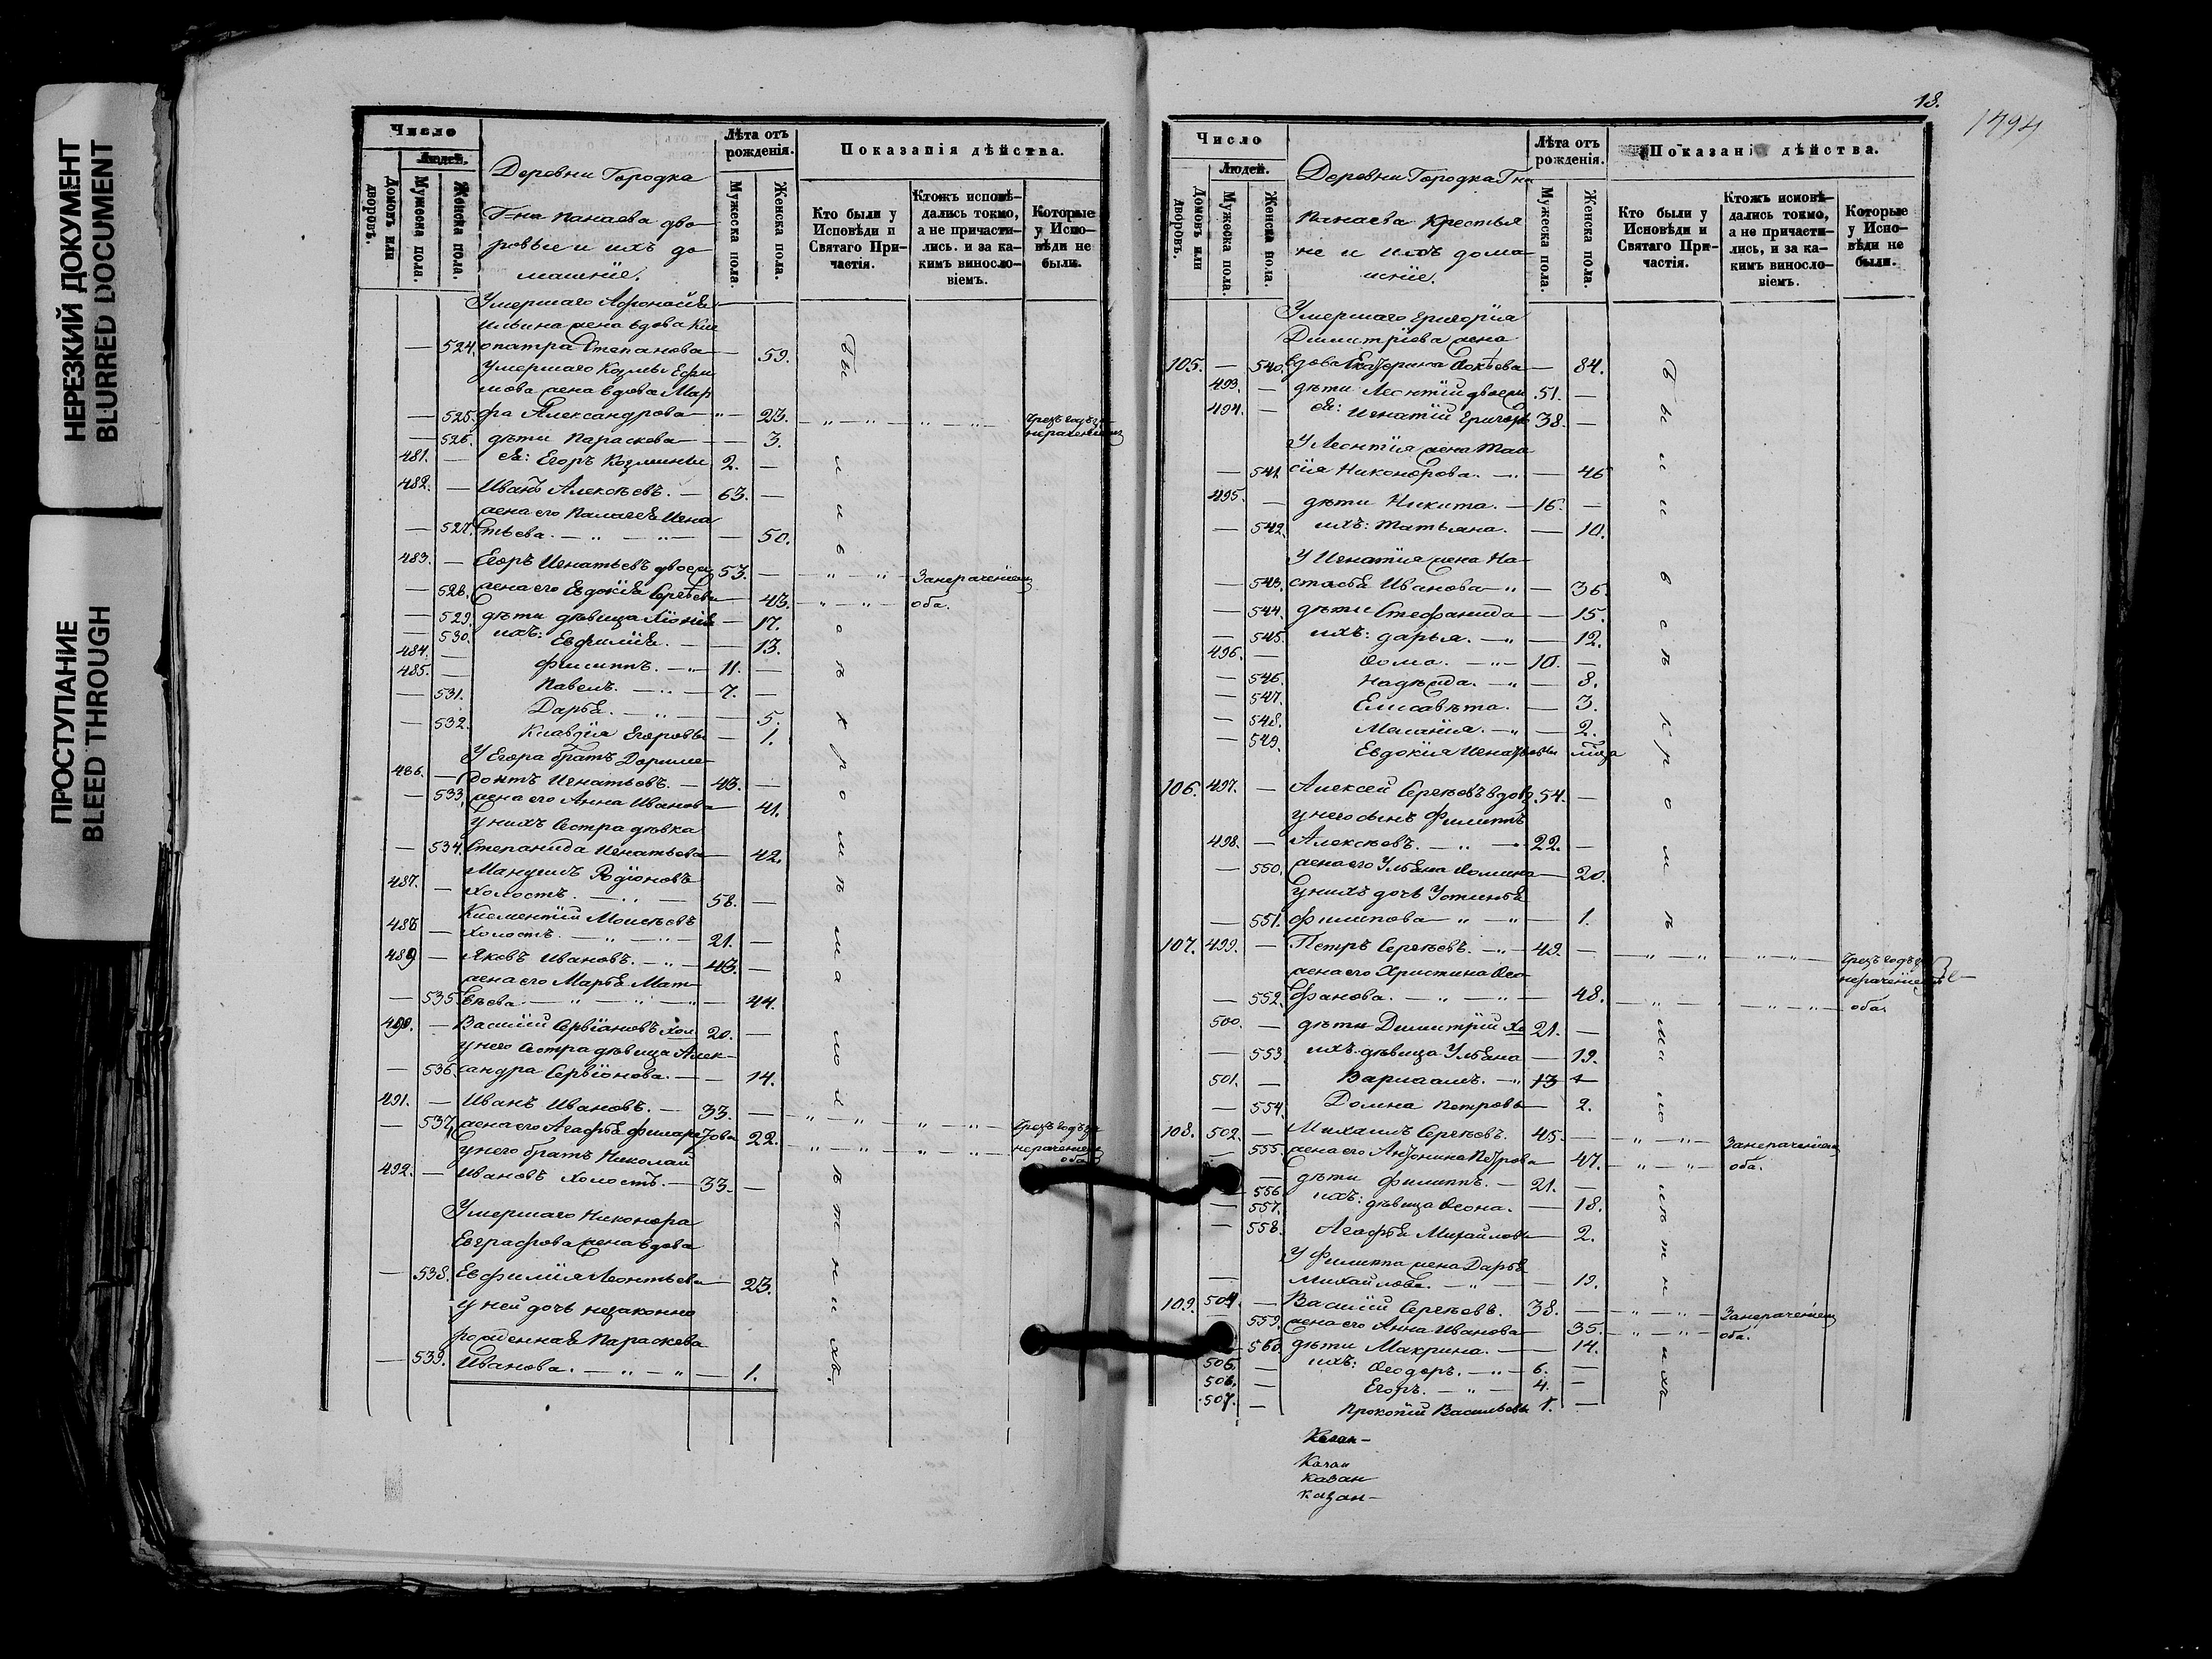 НЕРЕЗКИЙ ДОКУМЕНТ
BLURRED DOCUMENT
ПРОСТУПАНИЕ
BLEED THROUGH
Число
Людей.
Домовъ или дворовъ.
Мужеска пола.
Женска пола.
Деревни Городка
Г=на Панаева дво
ровые и ихъ до
машніе.
Лѣта отъ рожденія.
Мужеска пола.
Женска пола.
Показанія дѣйства.
Кто были у Исповѣди и Святаго Причастія.
Ктожъ исповѣдались токмо, а не причастились. и за какимъ винословіемъ.
Которые у Исповѣди не были.
Умершаго Афонасія
Ильина жена вдова Кле
— 524. опатра Степанова — 59.
Умершаго Козмы Ефи
мова жена вдова Мар
— 525. фа Александрова — 23.
— 526. дѣти Параскева — 3.
481. — ея: Егоръ Козмины 2. —
482. — Иванъ Алексѣевъ. — 63. —
жена его Палагея Игна
— 527. тьева. — 50.
483. — Егоръ Игнатьевъ двоеж 53. — Занераченіемъ
— 528. жена его Евдокія Сергѣева — 43. оба.
— 529. дѣти дѣвица — 17.
— 530. ихъ: Евфимія. — 13.
484. — Филиппъ. — 11. —
485. — Павелъ. — 7. —
— 531. Дарья. — 5.
— 532. Клавдія Егоровы — 1.
У Егора братъ Дориме
486. — донтъ Игнатьевъ. — 43. —
— 533. жена его Анна Иванова — 41.
у нихъ сестра дѣвка
— 534. Степанида Игнатьева — 42.
Мануилъ Родіоновъ
487. — холостъ. — 58. —
Климентій Моисѣевъ
488 — холостъ. — 21. —
489 — Яковъ Ивановъ. — 43. —
жена его Марья Мат
— 535. вѣева. — 44.
490. — Василій Сервіановъ хол 20. —
у него сестра дѣвица Алек-
— 536. сандра Сервіонова. — 14.
491. — Иванъ Ивановъ. — 33. —
— 537. жена его Агафья Филаретова 22.
у него братъ Николай
492. — Ивановъ холостъ. — 33. —
Умершаго Никонора
Евграфова жена вдова
— 538. Евфимія Леонтьева — 23.
у ней дочь незаконно
рожденная Параскева
— 539. Иванова. — 1.
18.
1494
Число
Людей.
Домовъ или дворовъ.
Мужеска пола.
Женска пола.
Деревни Городка Гна
Панаева крестья
не и ихъ дома
шніе.
Лѣта отъ рожденія.
Мужеска пола.
Женска пола.
Показанія дѣйства.
Кто были у Исповѣди и Святаго Причастія.
Ктожъ исповѣдались токмо, а не причастились, и за какимъ винословіемъ.
Которые у Исповѣди не были.
Умершаго Григорія
Димитріева жена
105. — 540. вдова Екатерина — 84.
493. — дѣти Леонтій двоеж 51. —
494. — ея: Игнатій Григорь 38. —
У Леонтія жена Таи
— 541 сія Никонорова. — 46
495. — дѣти Никита. — 16. —
— 542. ихъ: Татьяна. — 10.
У Игнатія жена На-
— 543. стасья Иванова — 36.
— 544. дѣти Стефанида — 15.
— 545. ихъ: Дарья. — 12.
496. — Ѳома. — 10. —
— 546. Надѣжда. — 8.
— 547. Елисавѣта. — 3.
— 548. Меланія. — 2.
— 549. Евдокія Игнатьевы
106. 497. — Алексей Сергѣевъ вдовъ 54. —
у него сынъ Филиппъ
498. — Алексѣевъ. — 22. —
— 550. жена его Ульяна Ѳомина — 20.
у нихъ дочь Устинья
— 551. Филипова — 1.
107. 499. — Петръ Сергѣевъ. — 49. —
жена его Христина Ѳео
— 552. фанова. — 48. — оба.
500. — дѣти Димитрій хо 21. —
— 553 ихъ дѣвица Ульяна — 19.
501. — Варлаамъ. — 13
— 554. Домна Петровы — 2.
108. 502. — Михаилъ Сергѣевъ. 45. — Занераченіемъ
— 555. жена его Антонина Петрова — 47. оба.
— дѣти Филиппъ. — 21. —
556.
— 557. ихъ: дѣвица Ѳеона. — 18.
— 558. Агафья Михайловы — 2.
У Филиппа жена Дарья
— Михайлова. — 19.
109. 504. — Василій Сергѣевъ. 38. — Занераченіемъ
559. жена его Анна Иванова — 35. оба.
— 560. дѣти Макрина. — 14.
505. — ихъ: Ѳеодоръ. — 6. —
506. — Егоръ. — 4. —
507. — Прокопій Васильевы 1. —
Казан-
Казан
Казан
Казан-